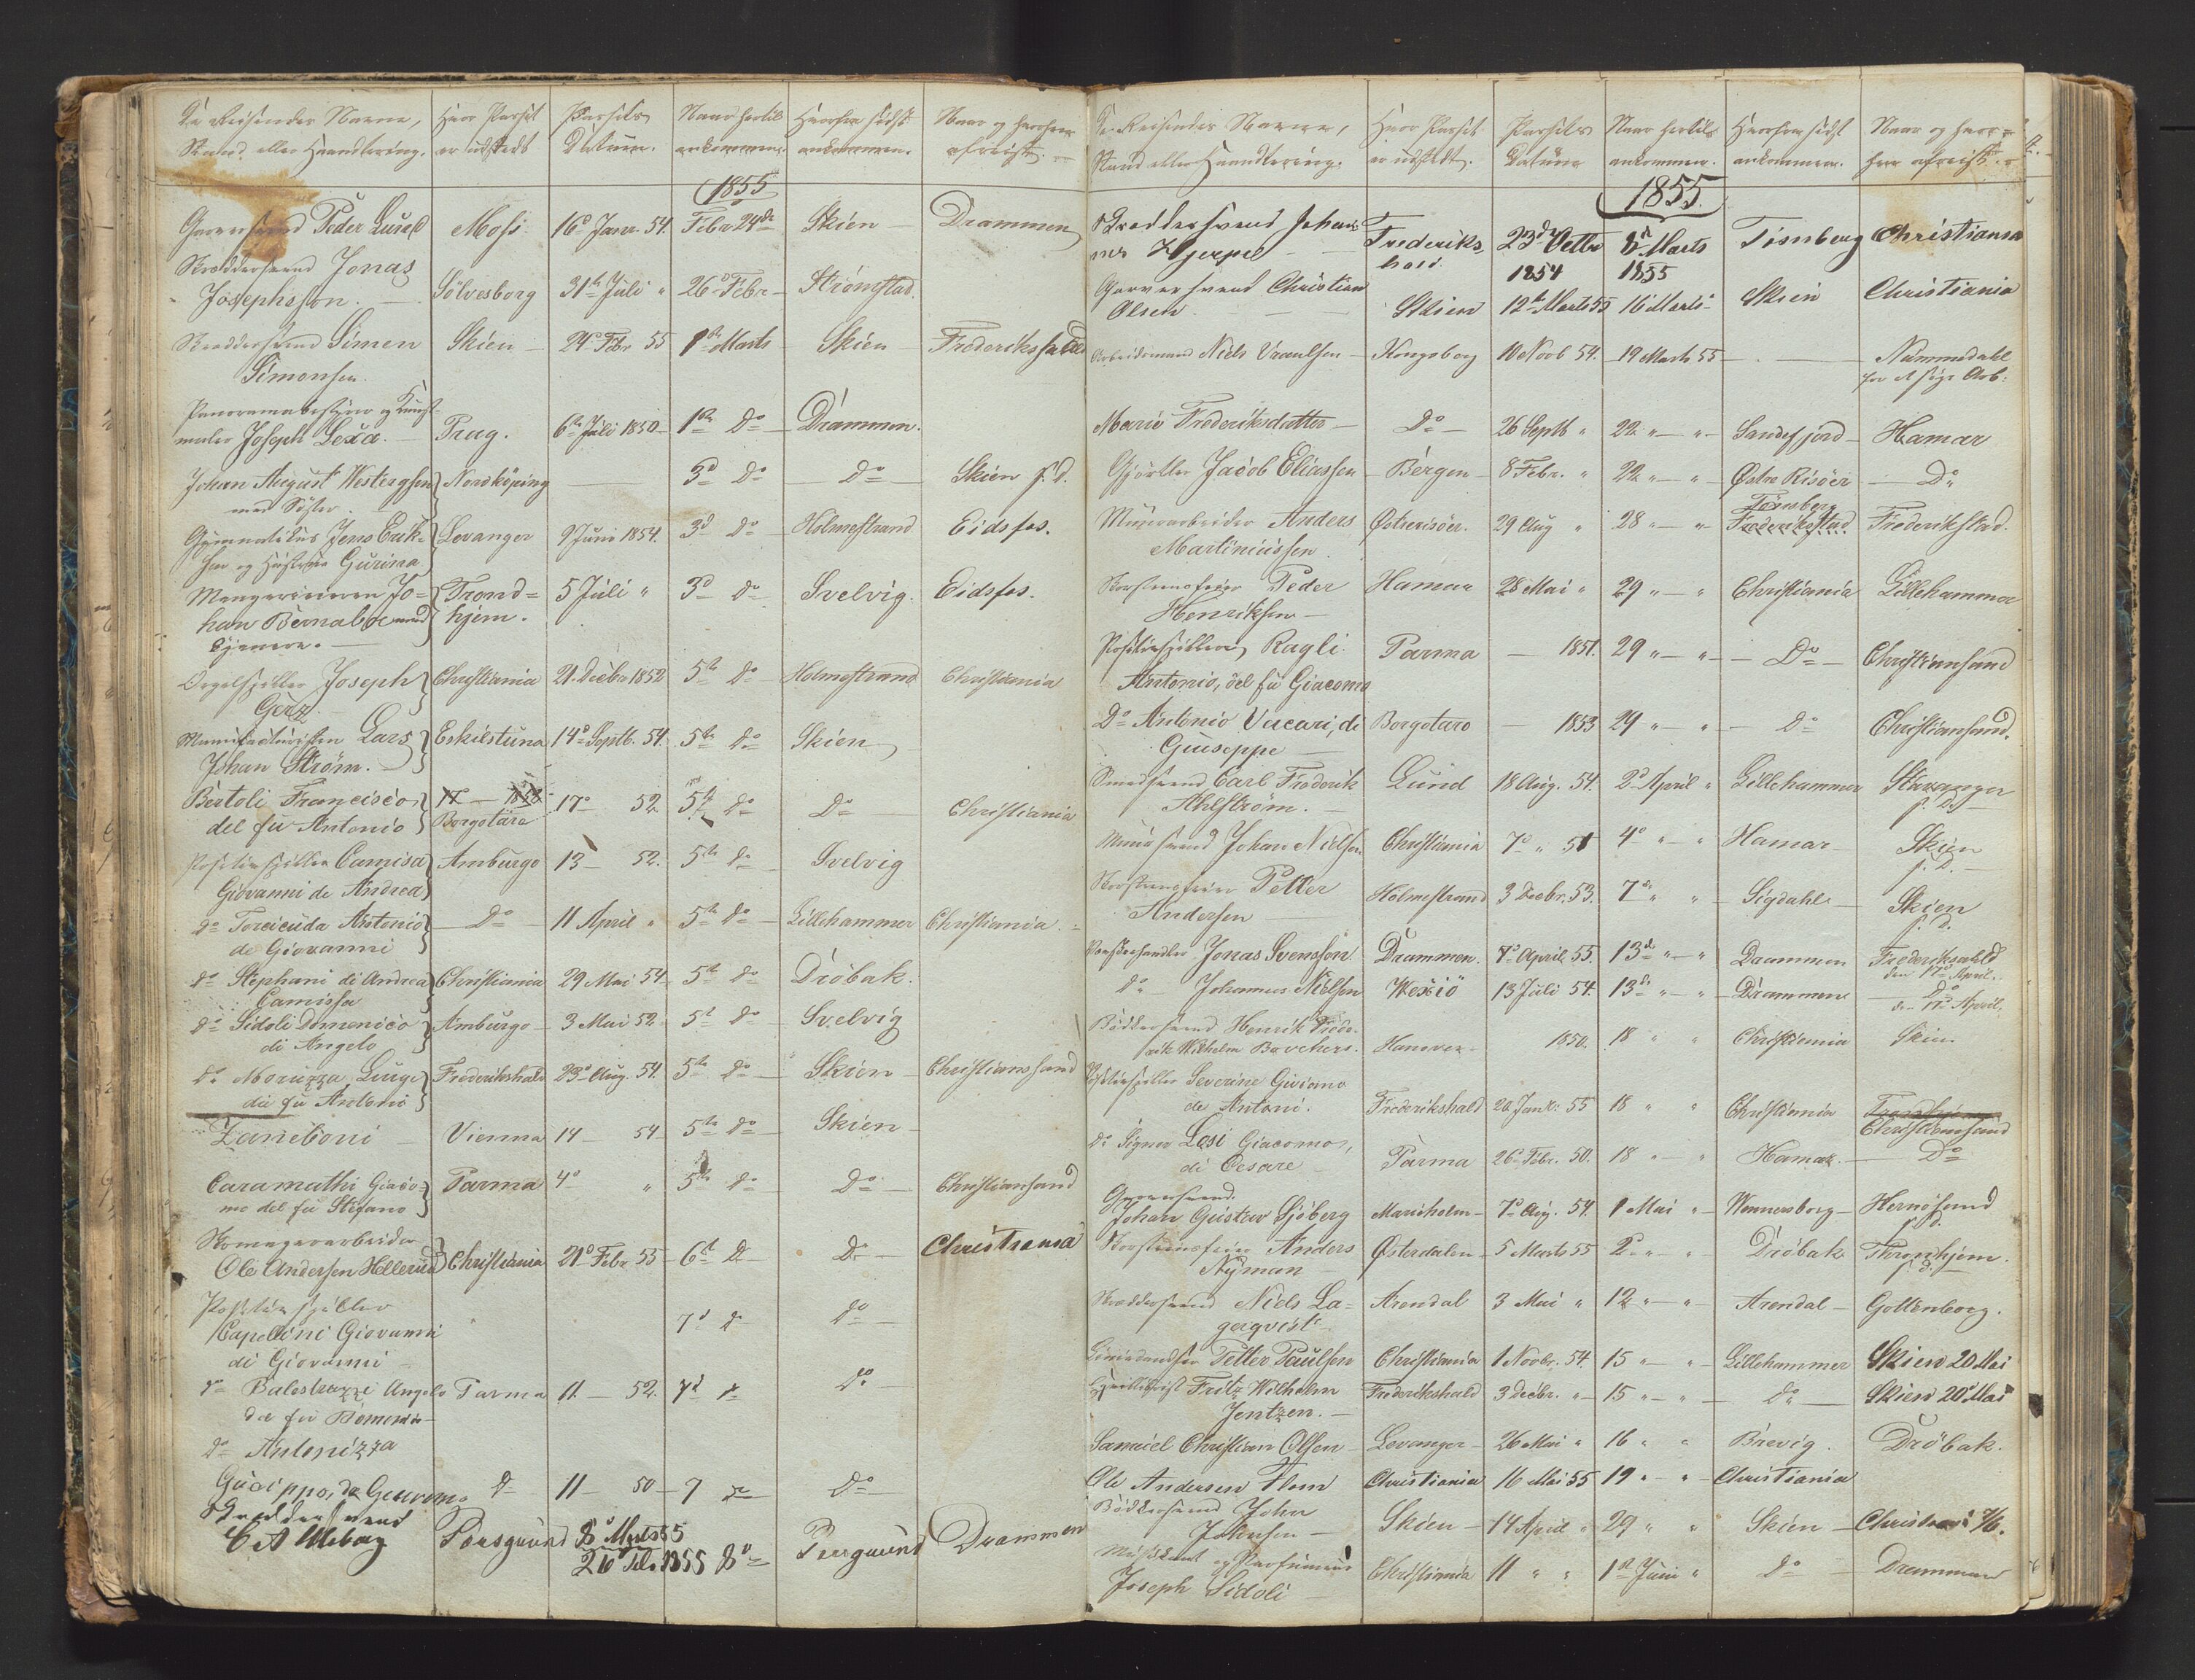 De Reisendes Navne, Hvor Passet Passets Naar hertil Hvorfra sidst Naar og hvorhen
Stand eller Haandtering. er udstedt Datum. ankommen. ankommen. afreist.
1855
Garversvend Peder Lund Moss 16de Janr. 54. Febr 24de Skien Drammen
Skræddersvend Jonas
Josephsson. Sölvesborg 31te Juli " 26de Febr Strømstad.
Skræddersvend Simen Skien 24de Febr 55 1ste Marts Skien Frederikshald
Simonsen.
Panoramabestyrer og Kunst-
maler Joseph Lexa. Prag. 6te Juli 1850 1ste Do Drammen.
Johan August Westergsen Nordköping 3d Do Do Skien s. D.
med Søster.
Gymnatikus Jens Erik- Levanger 9 Juni 1854. 3d Do Holmestrand Eidsfos.
sen og Hustrue Gurina
Johan Trond= 5 Juli " 3d Do Svelvig. Eidsfos.
han Bernaboe med hjem.
Orgelspiller Joseph Christiania 21. Decbr 1852 5te Do Holmestrand Christiania
Lars Eskilstuna 14de Septb. 54. 5te Do Skien
Johan Strøm.
Bertoli Francisco 17de 52. 5te Do Do Christiania
del fu Antonio Borgotaro
Positivspiller Camisa Amburgo 13 52. 5te Do Svelvig
Giovanni de Andrea
do Torcicuda Antonio Do 11 April " 5te Do Lillehammer Christiania
de Giovanni
do Stephani di Andrea Christiania 29 Mai 54 5te Do Dröbak.
Camissa
do Sidoli Domenico Amburgo 3 Mai 52 5te Do Svelvig
di Angelo
do Moruzza Luigi Frederikshald 23de Aug. 54. 5te Do Skien Christianssand
di fu Antonio
Zaneboni Vienna 14 54 5te Do Skien
Caramathi Giaco- Parma 4de " 5te Do Do Christiansand
mo del fu Stefano
Ole Andersen Hellerud Christiania 21de Febr 55 6te Do Do Christiania
Positivspiller
Capellini Giovanni 7d Do Do
di Giovanni
do Balestrazzi Angelo Parma 11. 52. 7d Do Do
do Antonizza
Do 11 50 7 Do Do
Skræddersvend 8de Marts 55
Porsgrund 26de Feb 1855 8de Porsgrund Drammen
De Reisendes Navne, Hvor Passet Passets Naar hertil Hvorfra sidst Naar og hvor-
Stand eller Haandtering. er udstedt. Datum ankommen. ankommen. hen afreist.
1855.
Skræddersvend Johan- Frederiks- 23de Octbr 8de Marts Tönsberg Christiania
nes Hjerpe hald. 1854 1855
Garversvend Christian
Olsen Skien 12te Marts 55 16 Marts Skien Christiania
Arbeidsmand Niels Kongsberg 10 Novb 54. 19 Marts 55 Nummedahl
for at søge Arb:
Marie Frederiksdatter Do 26 Septb " 22 " " Sandefjord Hamar
Gjørtler Jacob Eliassen Bergen 8 Febr. " 22 " " Østre Risöer Do
Tønsberg
Muurarbeider Anders Østerisöer. 29 Aug " 28 " " Frederikstad Frederikstad.
Martiniussen
Skorsteensfeier Peder Hamar 28 Mai " 29 " " Christiania Lillehammer
Henriksen
Positivspilleren Ragli Parma 1851. 29 " " Do Christiansand
Antonio, del fu Giacomo
Do Antonio Vacari, di Borgotaro 1853 29 " " Do Christiansand.
Giuseppe
Smedsvend Carl Frederik Lund 18 Aug. 54. 2d April " Lillehammer Stavanger
Ahlstrøm. s. D.
Muursvend Johan Nielsen Christiania 7de " 51 4de " " Hamar Skien
s. D.
Skorsteensfeier Petter Holmestrand 3 Decbr. 53. 7de " " Sigdahl Skien
Andersen s. D.
Jonas Svensson Drammen. 7de April 55. 13de " " Drammen Frederikshald
den 17de April.
do Johannes Nielsen Wexiö 13 Juli 54. 13de " " Drammen Do
den 17de April.
Bödkersvend Henrik Frede-
rik Wilhelm Borchers. Hanover 1850. 18 " " Christiania Skien
Positivspiller Severine Giviano
de Antoni. Frederikshald 20 Janr. 55 18 " " Christiania Trondhjem
Christiansand
do Signor Losi Giacomo,
di Cesare Parma 26de Febr. 50. 18 " " Hamar. Do
Garversvend
Johan Gustav Sjöberg Mariholm 7de Aug. 54. 1 Mai " Wennersborg Hernösand
s. D.
Skorsteensfeier Anders Österdalen 5 Marts 55 2de " " Dröbak Thronhjem.
Nyman s. D.
Skræddersvend Niels La- Arendal 3 Mai " 12 " " Arendal Gottenborg.
gerqvist
Liniedandser Petter Paulsen Christiania 1 Novbr. 54. 15 " " Lillehammer Skien 20 Mai
Fritz Wilhelm Frederikshald 3 Decbr. " 15 " " do Skien 20 Mai
Jentzen.
Samuel Christian Olsen Levanger 26 Mai " 16 " " Brevig. Dröbak.
Ole Andersen Flom Christiania 16 Mai 55 19 " " Christiania
Bödkersvend John
Johnsen Skien 14 April " 29 " " Skien Christiania
Joseph Sidoli Christiania 11 " " 1ste Juni " do Drammen